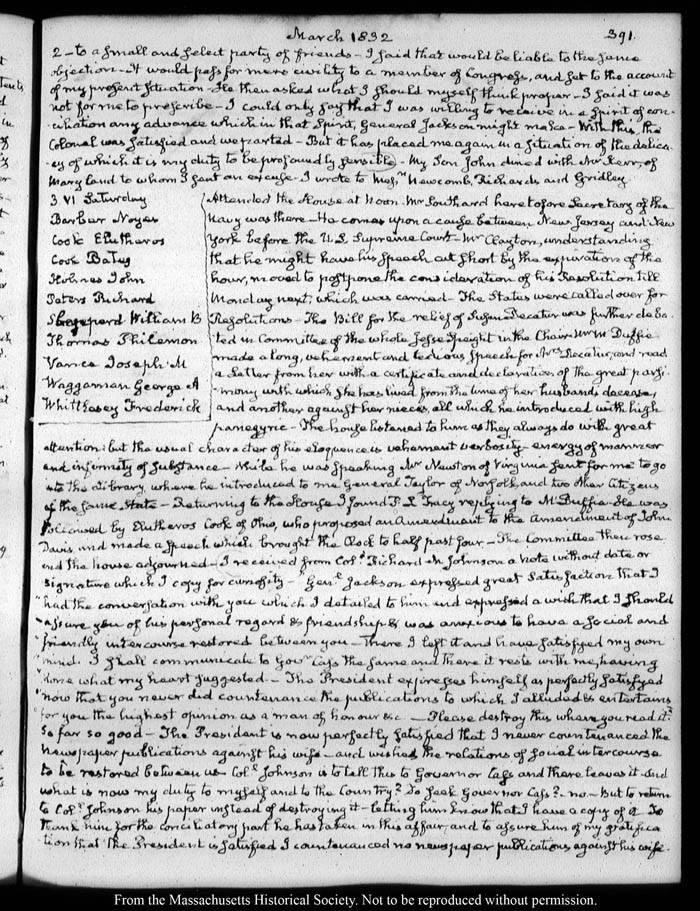 March 1832 391.
2 – to a small and select party of friends – I said that would be liable to the same
objection – It would pass for mere civility to a member of Congress, and set to the account
of my present situation – He then asked what I should myself think proper – I said it was
not for me to prescribe – I could only say that I was willing to receive in a Spirit of con-
ciliation any advance which in that Spirit, General Jackson might make – With this, the
Colonel was satisfied and we parted – But it has placed me again in a situation of the delica-
cy of which it is my duty to be profoundly sensible – My Son John dined with Mr Kerr, of
Maryland to whom I sent an excuse. I wrote to Mess.rs Newcomb, Richards and Gridley
3 VI Saturday
Barber Noyes
Cook Elutheros
Cook Bates
Holmes John
Peters Richard
Shepperd William B
Thomas Philemon
Vance Joseph M
Waggaman George A
Whittlesey Frederick
Attended the House at Noon. Mr Southard heretofore Secretary of the
Navy was there – He comes upon a cause between New Jersey and New
York before the U.S. Supreme Court – Mr Clayton, understanding
that he might have his Speech cut short by the expiration of the
hour, moved to postpone the consideration of his Resolution till
Monday next, which was carried – The States were called over for
Resolutions – The Bill for the relief of Susan Decatur was further deba-
ted in Committee of the whole Jesse Speight in the Chair – Mr M'Duffie
made a long, vehement and tedious Speech for Mrs Decatur, and read
a Letter from her with a certificate and declaration of the great parsi-
mony with which She has lived from the time of her husband's decease,
and another against her nieces, all which he introduced with high
panegyric – The house listened to him as they always do with great
attention: but the usual character of his eloquence is vehement verbosity – energy of manner
and infirmity of substance – While he was speaking Mr Newton of Virginia sent for me to go
into the Library, where he introduced to me General Taylor of Norfolk, and two other Citizens
of the same State – Returning to the House I found P. L. Tracy replying to M'Duffie – He was
followed by Elutheros Cook of Ohio, who proposed an Amendment to the Amendment of John
Davis and made a Speech which brought the Clock to half past four – The Committee then rose
and the house adjourned – I received from Col.l Richard M Johnson a Note without date or
signature which I copy for curiosity – "Gen.l Jackson expressed great satisfaction that I
"had the conversation with you which I detailed to him and expressed a wish that I should
"assure you of his personal regard & friendship & was anxious to have a social and
"friendly intercourse restored between you – There I left it and have satisfyed my own
"mind. I shall communicate to Gov.r Cass the same and there it rests with me, having
"done what my heart suggested – The President expresses himself as perfectly satisfyed
"now that you never did countenance the publications to which I alluded & entertains
"for you the highest opinion as a man of honour &c – Please destroy this where you read it."
So far so good – The President is now perfectly satisfied that I never countenanced the
Newspaper publications against his wife – and wishes the relations of social intercourse
to be restored between us – Col.l Johnson is to tell this to Governor Cass and there leaves it – And
what is now my duty to myself and to the Country? To seek Governor Cass? – no – But to return
to Col.l Johnson his paper instead of destroying it – letting him know that I have a copy of it. To
thank him for the conciliatory part he has taken in this affair, and to assure him of my gratifica-
tion that the President is satisfied I countenanced no newspaper publications against his wife.
From the Massachusetts Historical Society. Not to be reproduced without permission.